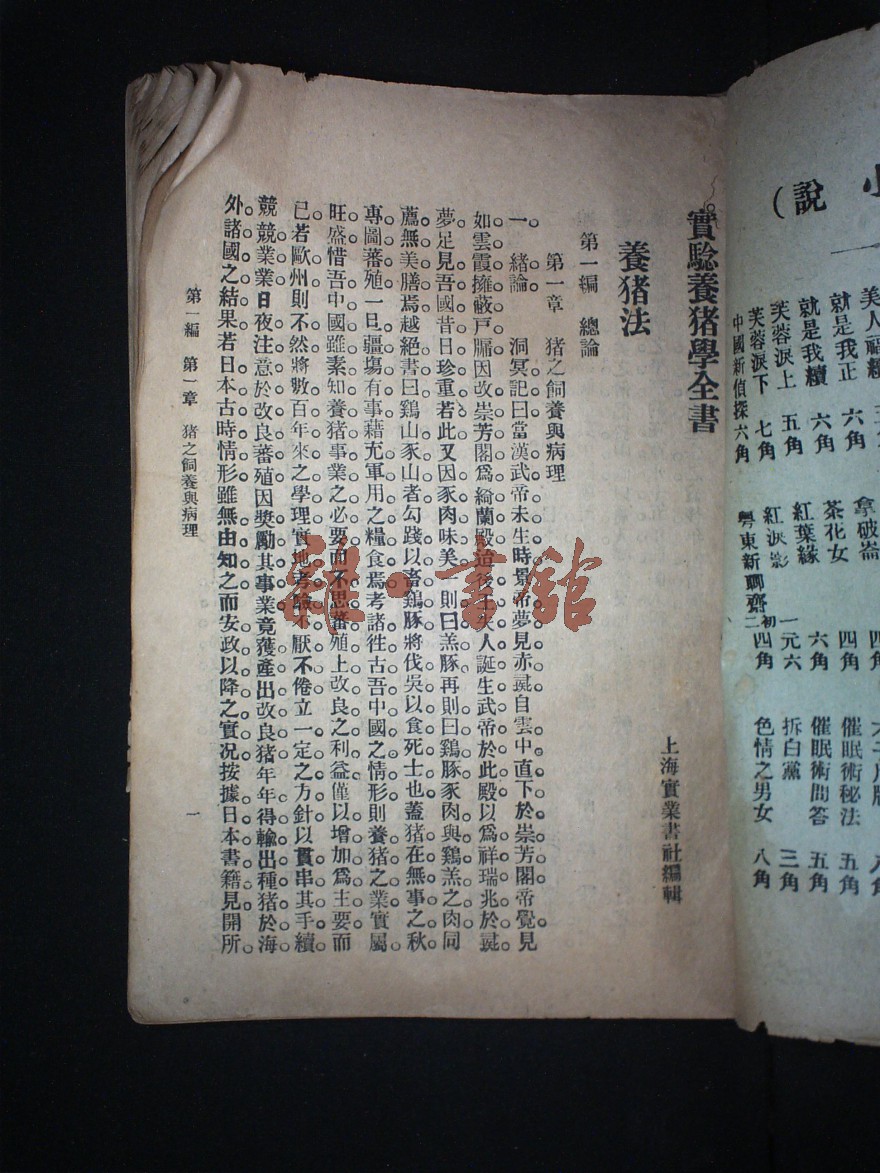 小說）
美人福續
就是我正 六角
就是我續 六角
芙蓉淚上 五角
芙蓉淚下 七角
中國新偵探 六角
拿破崙 四角
茶花女 四角
紅葉緣 六角
紅淚影 一元六
粵東新聊齋初二 四角
八角
催眠術秘法 五角
催眠術問答 五角
拆白黨 三角
色情之男女 八角
實驗養猪學全書
上海實業書社編輯
養猪法
第一編 總論
第一章 猪之飼養與病理
一 緒論 洞冥記曰當漢武帝未生時景帝夢見赤彘自雲中直下於崇芳閣帝覺見
如雲霞擁蔽戸牖因改崇芳閣爲綺蘭殿迨後王夫人誕生武帝於此殿以爲祥瑞兆於彘
夢足見吾國昔日珍重若此又因豕肉味美一則曰羔豚再則曰鷄豚豕肉與鷄羔之肉同
薦無美膳焉越絶書曰鷄山豕山者勾踐以畜鷄豚將伐吳以食死士也蓋猪在無事之秋
專圖蕃殖一旦疆塲有事藉充軍用之糧食焉考諸徃古吾中國之情形則養猪之業實屬
旺盛惜吾中國雖素知養猪事業之必要而不思蕃殖上改良之利益僅以增加爲主要而
已若歐州則不然將數百年來之學理實地考驗不厭不倦立一定之方針以貫串其手續
競競業業日夜注意於改良蕃殖因奬勵其事業竟獲產出改良猪年年得輸出種猪於海
外諸國之結果若日本古時情形雖無由知之而安政以降之實况按據日本書籍見開所
第一編 第一章 猪之飼養與病理
一
雜·書館